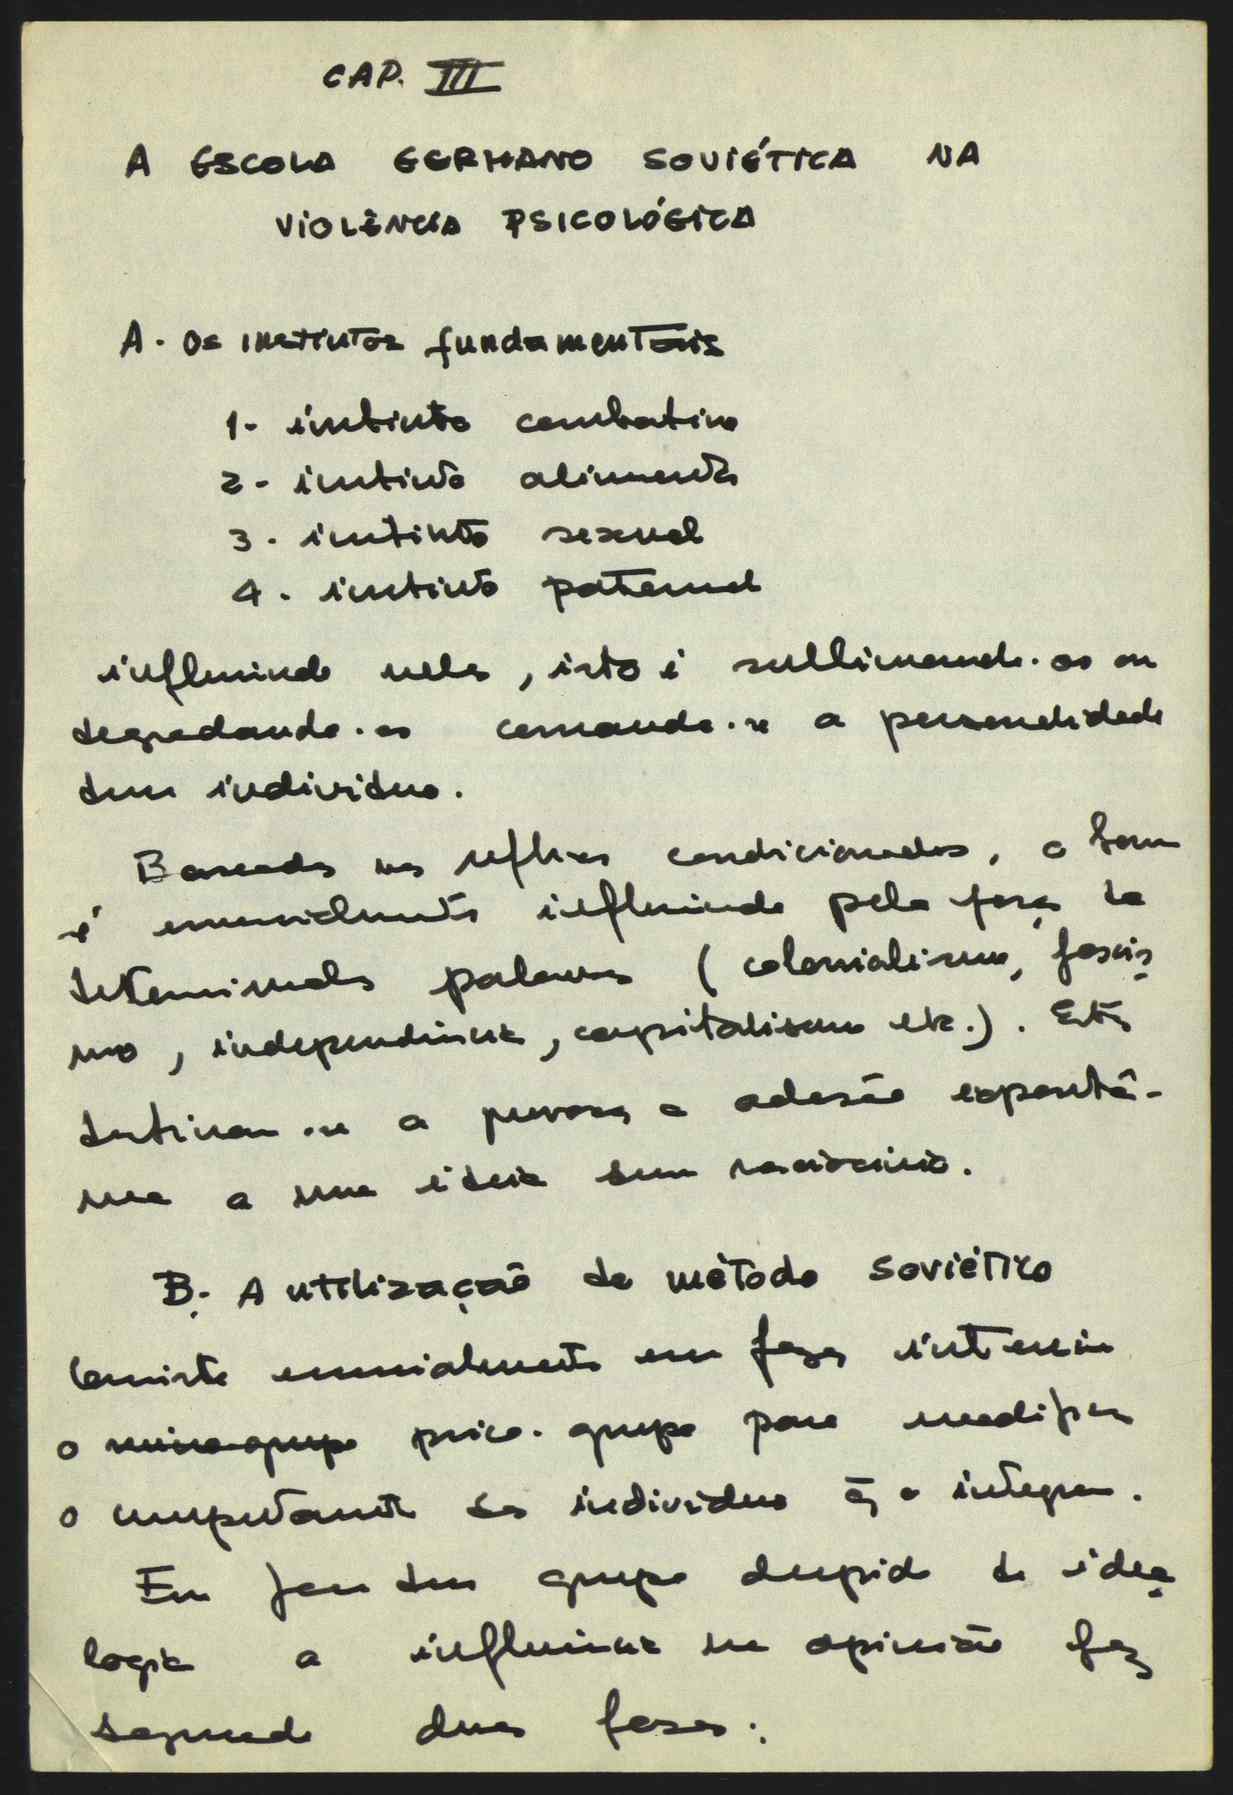 CAP. III
A ESCOLA GERMANO SOVIÉTICA NA
VIOLÊNCIA PSICOLÓGICA
A. Os instintos fundamentais
1- instinto combativo
2- instinto alimentar
3. instinto sexual
4. instinto paternal
influindo neles, isto é sublimando-os ou
degradando-os comanda-se a personalidade
dum individuo.
Baseados nos reflexos condicionados, o homem
é essencialmente influenciado pela força de
determinadas palavras (colonialismo, fascis
mo, independência, capitalismo etc.). Estas
destinam-se a provocar a adesão espontâ-
nea a uma ideia sem raciocinio.
B. A utilização do método soviético
Consiste essencialmente em fazer intervir
o psico-grupo para modificar
o comportamento do individuo q o integra.
Em face dum grupo despido de ideo
logia a influência na opinião faz
segundo duas fases: